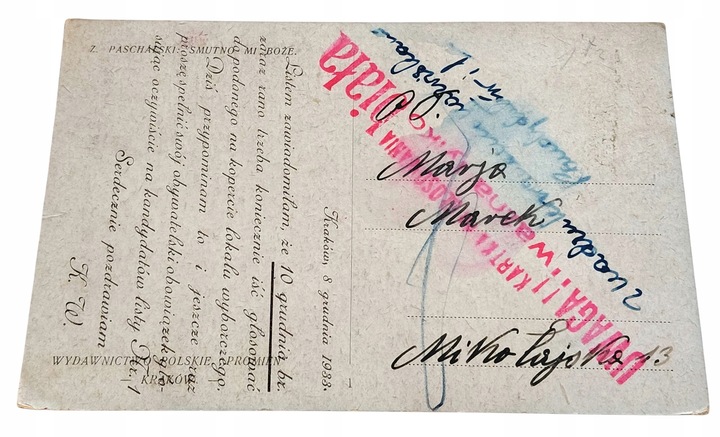 Z. PASCHALSKI: SMUTNO MI BOŻE.
Kraków, 8 grudnia 1933.
Listem zawiadomiłam, że 10 grudnia br.
zaraz rano trzeba koniecznie iść głosować
do podonego na kopercie lokalu wyborczego.
Dziś przypominam to i jeszcze raz
proszę spełnić swój obywatelski obowiązek gło-
sując oczywiście na kandydatów listy Nr. 1
Serdecznie pozdrawiam
K. W.
WYDAWNICTWO POLSKIE „PROMIEŃ”
— KRAKÓW. —
UWAGA! KARTKA
GŁOSOWANIA
ważna
tylko
biała
P
Marja
Marek
Mikołajska 13